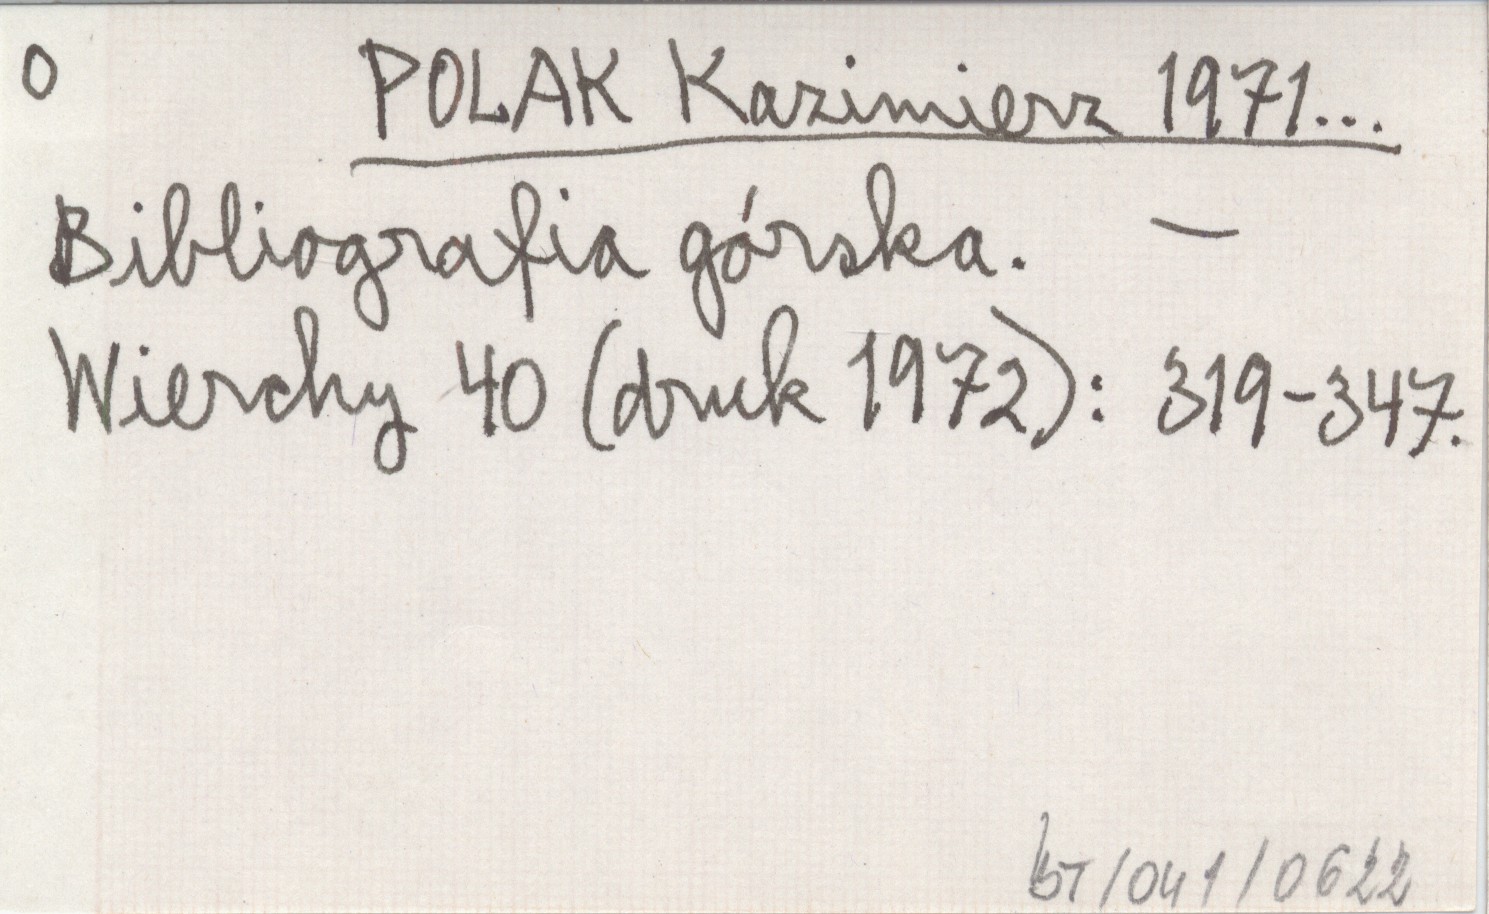 O POLAK Kazimierz 1971...
Bibliografia górska. —
Wierchy 40 (druk 1972): 319-347.
BT/041/0622